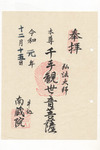 奉拝
弘法大師
本尊 千手観世音菩薩
令和元年
十二月十五日
南蔵院